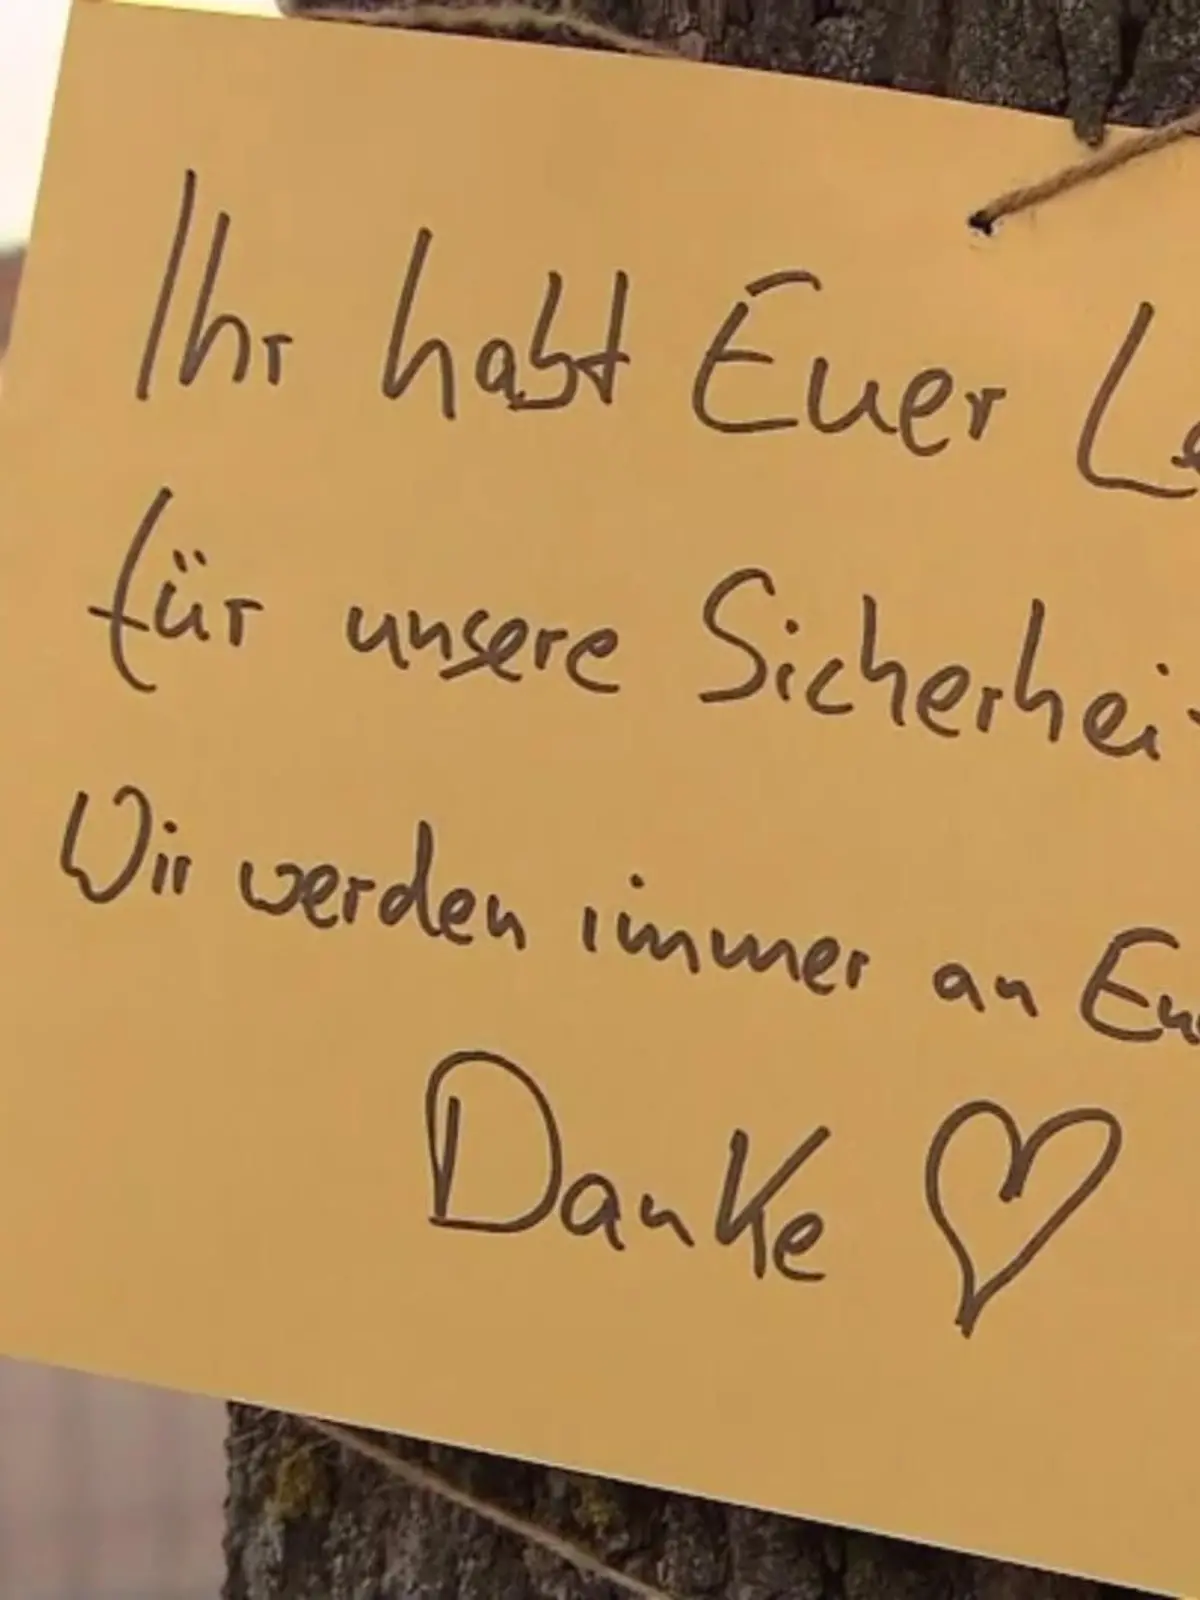 Ihr habt Euer Le
für unsere Sicherheit
Wir werden immer an Eu
Danke ♡